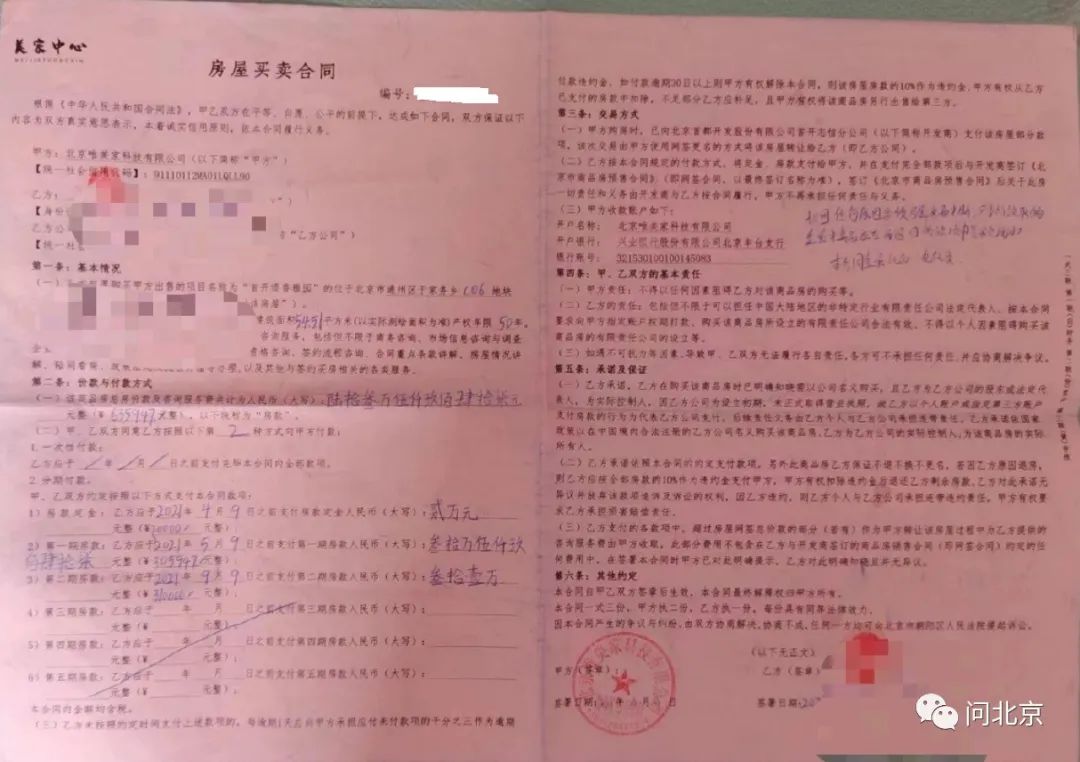 美家中心
MEIJIAZHONGXIN
房屋买卖合同
编号:
根据《中华人民共和国合同法》,甲乙双方在平等、自愿、公平的前提下,达成如下合同,双方保证以下
内容为双方真实意思表示,本着诚实信用原则,依本合同履行义务。
甲方:北京唯美家科技有限公司(以下简称“甲方”)
【统一社会信用代码】:
乙方:
【身份
乙方公
“乙方公司”)
【统一社
第一条:基本情况
购买甲方出售的项目名称为“首开语香雅园”的位于北京市通州区于家务乡C06地块
该房屋”)。
建筑面积54.51平方米(以实际测绘面积为准)产权年限50年。
咨询服务,包括但不限于商务咨询、市场信息咨询与调查
价格咨询、签约流程咨询、合同重点条款讲解、房屋情况讲
以及其他与签约买房相关的各类服务。
第二条:价款与付款方式
(一)该商品房总房价款及咨询服务费共计为人民币(大写):陆拾叁万伍仟玖佰肆拾柒元
元整(¥635947元整),以下统称为“房款”。
(二)甲、乙双方同意乙方按照以下第2种方式向甲方付款:
1.一次性付款:
乙方应于/年/月/日之前支付完毕本合同内全部款项。
2.分期付款。
甲、乙双方约定按照以下方式支付本合同款项:
1)房款定金:乙方应于2021年4月9日之前支付房款定金人民币(大写):贰万元
元整(¥20000元整);
2)第一期房款:乙方应于2021年5月9日之前支付第一期房款人民币(大写):叁拾万伍仟玖
佰肆拾柒元整(¥305947元整);
3)第二期房款:乙方应于2021年9月9日之前支付第二期房款人民币(大写):叁拾壹万
元整(¥310000元整);
4)第三期房款:乙方应于 年 月 日之前支付第三期房款人民币(大写):
元整(¥ 元整);
5)第四期房款:乙方应于 年 月 日之前支付第四期房款人民币(大写):
元整(¥ 元整);
6)第五期房款:乙方应于 年 月 日之前支付第五期房款人民币(大写):
元整(¥ 元整);
本合同内金额均含税。
(三)乙方未按照约定时间支付上述款项的,每逾期1天应向甲方承担应付未付款项的千分之三作为逾期
付款违约金,如付款逾期30日以上则甲方有权解除本合同,则该房屋房款的10%作为违约金,甲方有权从乙方
已支付的房款中扣除,不足部分乙方应补足,且甲方有权将该商品房另行出售给第三方。
第三条:交易方式
(一)甲方购房时,已向北京首都开发股份有限公司首开志信分公司(以下简称开发商)支付该房屋部分款
项,该次交易由甲方使用网签更名的方式将该房屋转让给乙方(即乙方公司)。
(二)乙方按本合同规定的付款方式,将定金、房款支付给甲方,并在支付完全部款项后与开发商签订《北
京市商品房预售合同》(即网签合同,以最终签订名称为准),签订《北京市商品房预售合同》后关于此房
一切责任和义务由开发商与乙方按合同履行,甲方不再承担任何责任与义务。
(三)甲方收款账户如下:
开户名称: 北京唯美家科技有限公司
开户银行: 兴业银行股份有限公司北京丰台支行
银行账号: 321530100100145083
第四条:甲、乙双方的基本责任
(一)甲方责任:不得以任何因素阻碍乙方对该商品房的购买等。
(二)乙方的责任:包括但不限于可以担任中国大陆地区的非特定行业有限责任公司法定代表人、按本合同
要求向甲方指定账户按期打款、购买该商品房所设立的有限责任公司合法有效、不得以个人因素阻碍购买该
商品房的有限责任公司的设立等。
(三)如遇不可抗力等因素,导致甲、乙双方无法履行各自责任,各方可不承担任何责任,并应协商解决争议。
第五条:承诺及保证
(一)乙方承诺,乙方在购买该商品房时已明确知晓要以公司名义购买,且乙方为乙方公司的股东或法定代
表人,为实际控制人,因乙方公司为设立初期,未正式取得营业执照,故乙方以个人账户或指定第三方账户
支付房款的行为为代表乙方公司支付,后续责任义务由乙方个人与乙方公司承担连带责任。乙方承诺依国家
政策以在中国境内合法注册的乙方公司名义购买该商品房,乙方为乙方公司的实际控制人,为该商品房的实际
所有人。
(二)乙方承诺依照本合同的约定支付款项,另外此商品房乙方保证不退不换不更名,若因乙方原因退房,
则乙方应按全部房款的10%作为违约金支付甲方,甲方有权扣除违约金后退还乙方剩余房款,乙方对此承诺无
异议并放弃该款项追诉及诉讼的权利,因乙方违约,则乙方个人与乙方公司承担连带违约责任,甲方有权要
求乙方承担损害赔偿责任。
(三)乙方支付的各款项中,超过房屋网签总价款的部分(若有)作为甲方转让该房屋过程中为乙方提供的
咨询服务费由甲方收取,此部分费用不包含在乙方与开发商签订的商品房销售合同(即网签合同)约定的任
何费用中,在签署本合同时甲方已对此明确提示,乙方对此明确知晓且并无异议。
第六条:其他约定
本合同自甲乙双方签章后生效,本合同最终解释权归甲方所有。
本合同一式三份,甲方执二份,乙方执一份,每份具有同等法律效力。
因本合同产生的争议与纠纷,由双方协商解决,协商不成,任何一方均可向北京市朝阳区人民法院提起诉讼。
(以下无正文)
甲方(签章):
乙方(签章)
签署日期:
签署日期:20
问北京